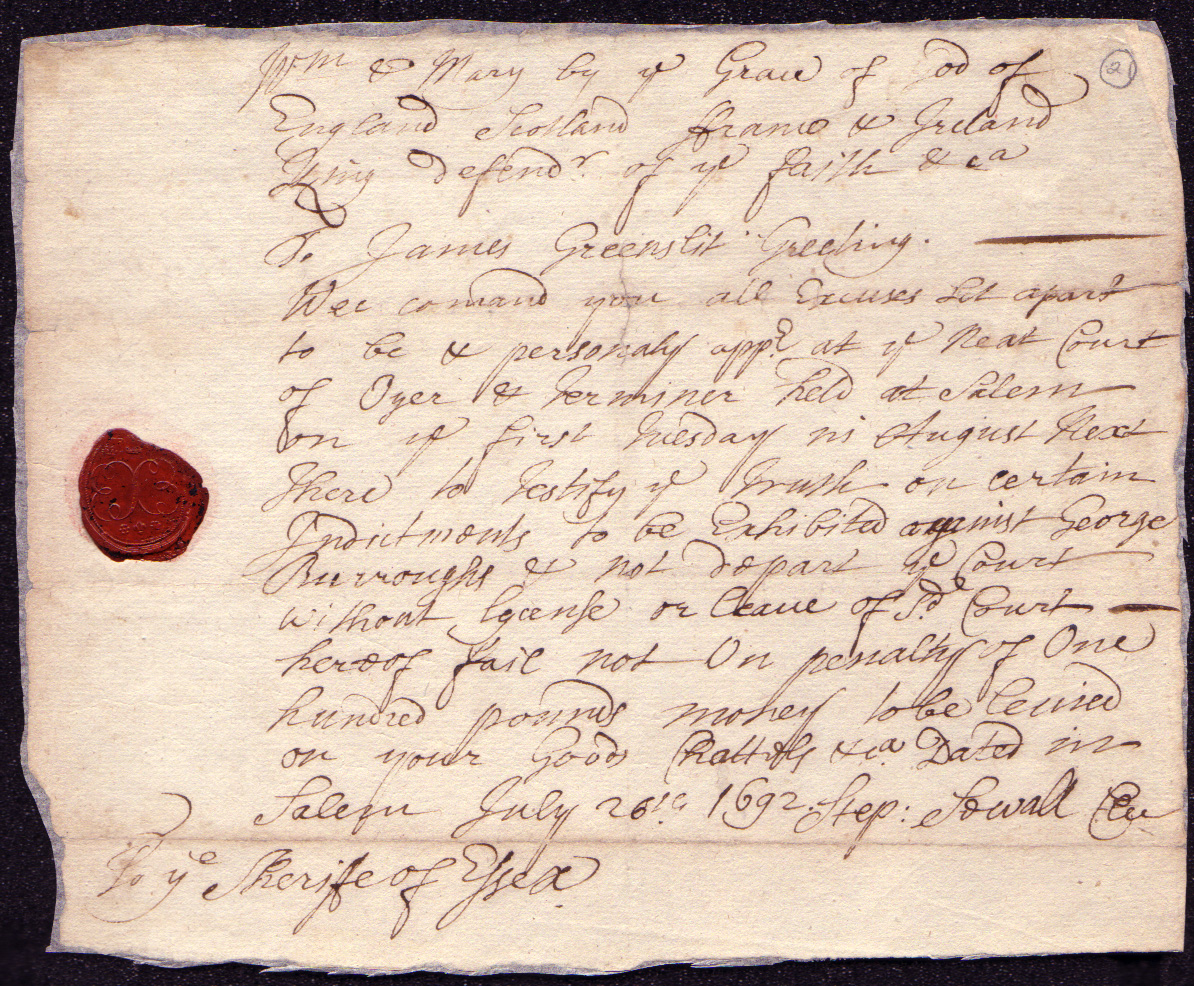 Wm & Mary by ye Grace of God of
2
England Scotland ffrance & Ireland
King defendr. of ye faith &ca
To James Greenslit Greeting.
Wee comand you all Excuses Set apart
to be & personaly appe. at ye Next Court
of Oyer & Terminer held at Salem
on ye first Tuesday in August Next
There to Testify ye Truth on certain
Indictments to be Exhibited against George
Burroughs & not depart ye Court
without lycense or leave of Sd. Court
hereof fail not On penalty of One
hundred pounds money to be levied
on your Goods Chattels &ca. Dated in
Salem July 26th. 1692. Step: Sewall Cler
To ye Sheriffe of Essex